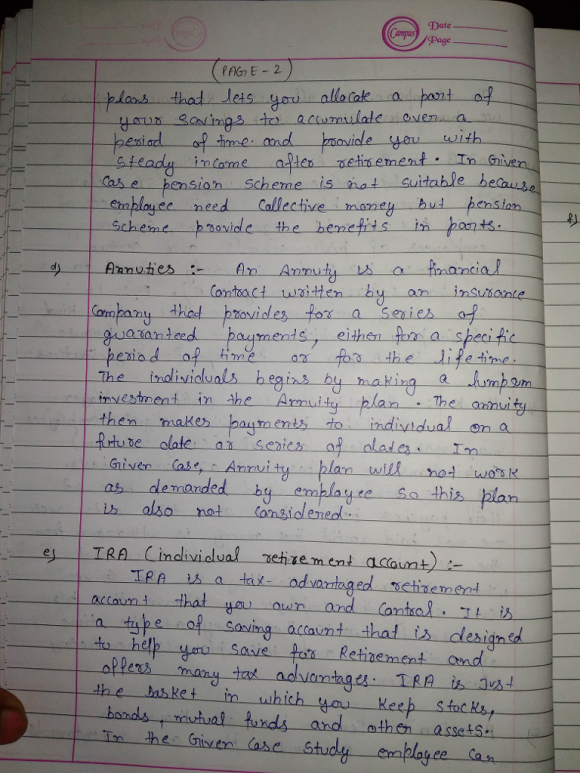 Campus
Date
Page
(PAGE-2)
plans that lets you allocate a part of
your savings to accumulate over a
period of time and provide you with
steady income after retirement. In Given
case pension scheme is not suitable because
employee need Collective money but pension
scheme provide the benefits in parts.
d) Annuties :- An Annuty is a financial
Contract written by an insurance
Company that provides for a series of
guaranteed payments, either for a specific
period of time or for the life time.
The individuals begins by making a lumpsum
investment in the Annuity plan. The annuity
then makes payments to individual on a
future date or series of dates. In
Given Case, Annuity plan will not work
as demanded by employee so this plan
is also not considered.
e) IRA (individual retirement account) :-
IRA is a tax-advantaged retirement
account that you own and Control. It is
a type of saving account that is designed
to help you save for Retirement and
offers many tax advantages. IRA is Just
the basket in which you keep stocks,
bonds, mutual funds and other assets.
In the Given Case Study employee can
f)